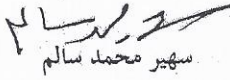 سهير محمد سالم